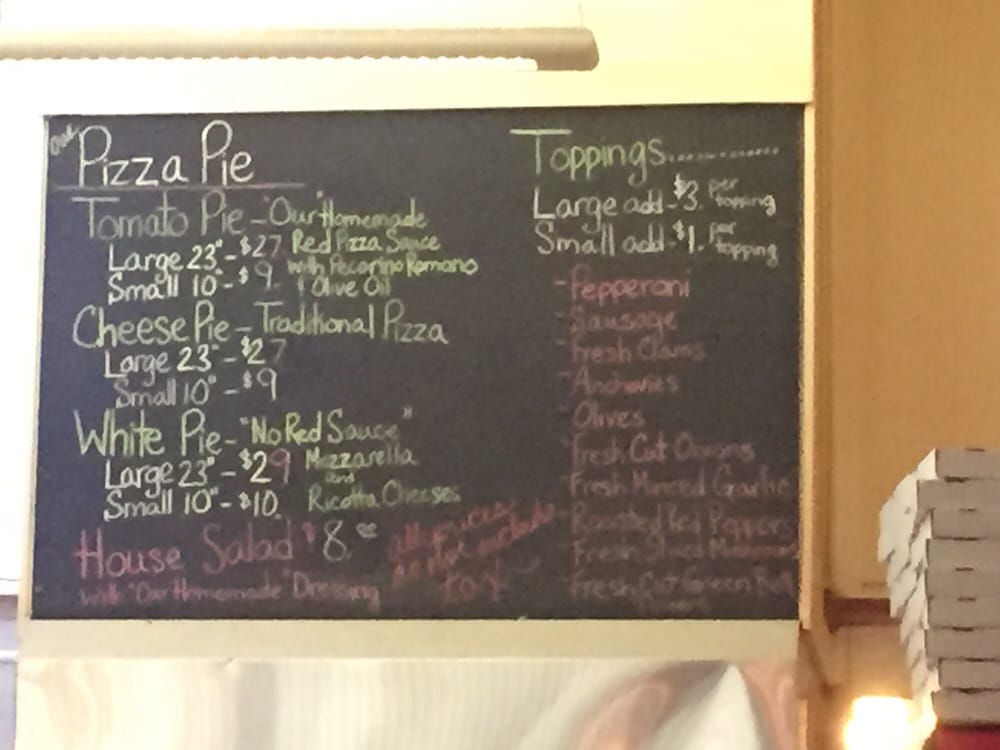 Our
Pizza Pie
Tomato Pie - "Our" Homemade
Large 23" - $27 Red Pizza Sauce
with Pecorino Romano
Small 10" - $9. & Olive Oil
Cheese Pie - Traditional Pizza
Large 23" - $27
Small 10" - $9
White Pie - "No Red Sauce"
Large 23" - $29 Mozzarella
and
Small 10" - $10. Ricotta Cheeses
House Salad $8.00
with "Our Homemade" Dressing
all prices
do not include
tax
Toppings............
Large add - $3. per topping
Small add - $1. per topping
- Pepperoni
- Sausage
- Fresh Clams
- Anchovies
- Olives
- Fresh Cut Onions
- Fresh Minced Garlic
- Roasted Red Peppers
- Fresh Sliced
- Fresh Cut Green Bell